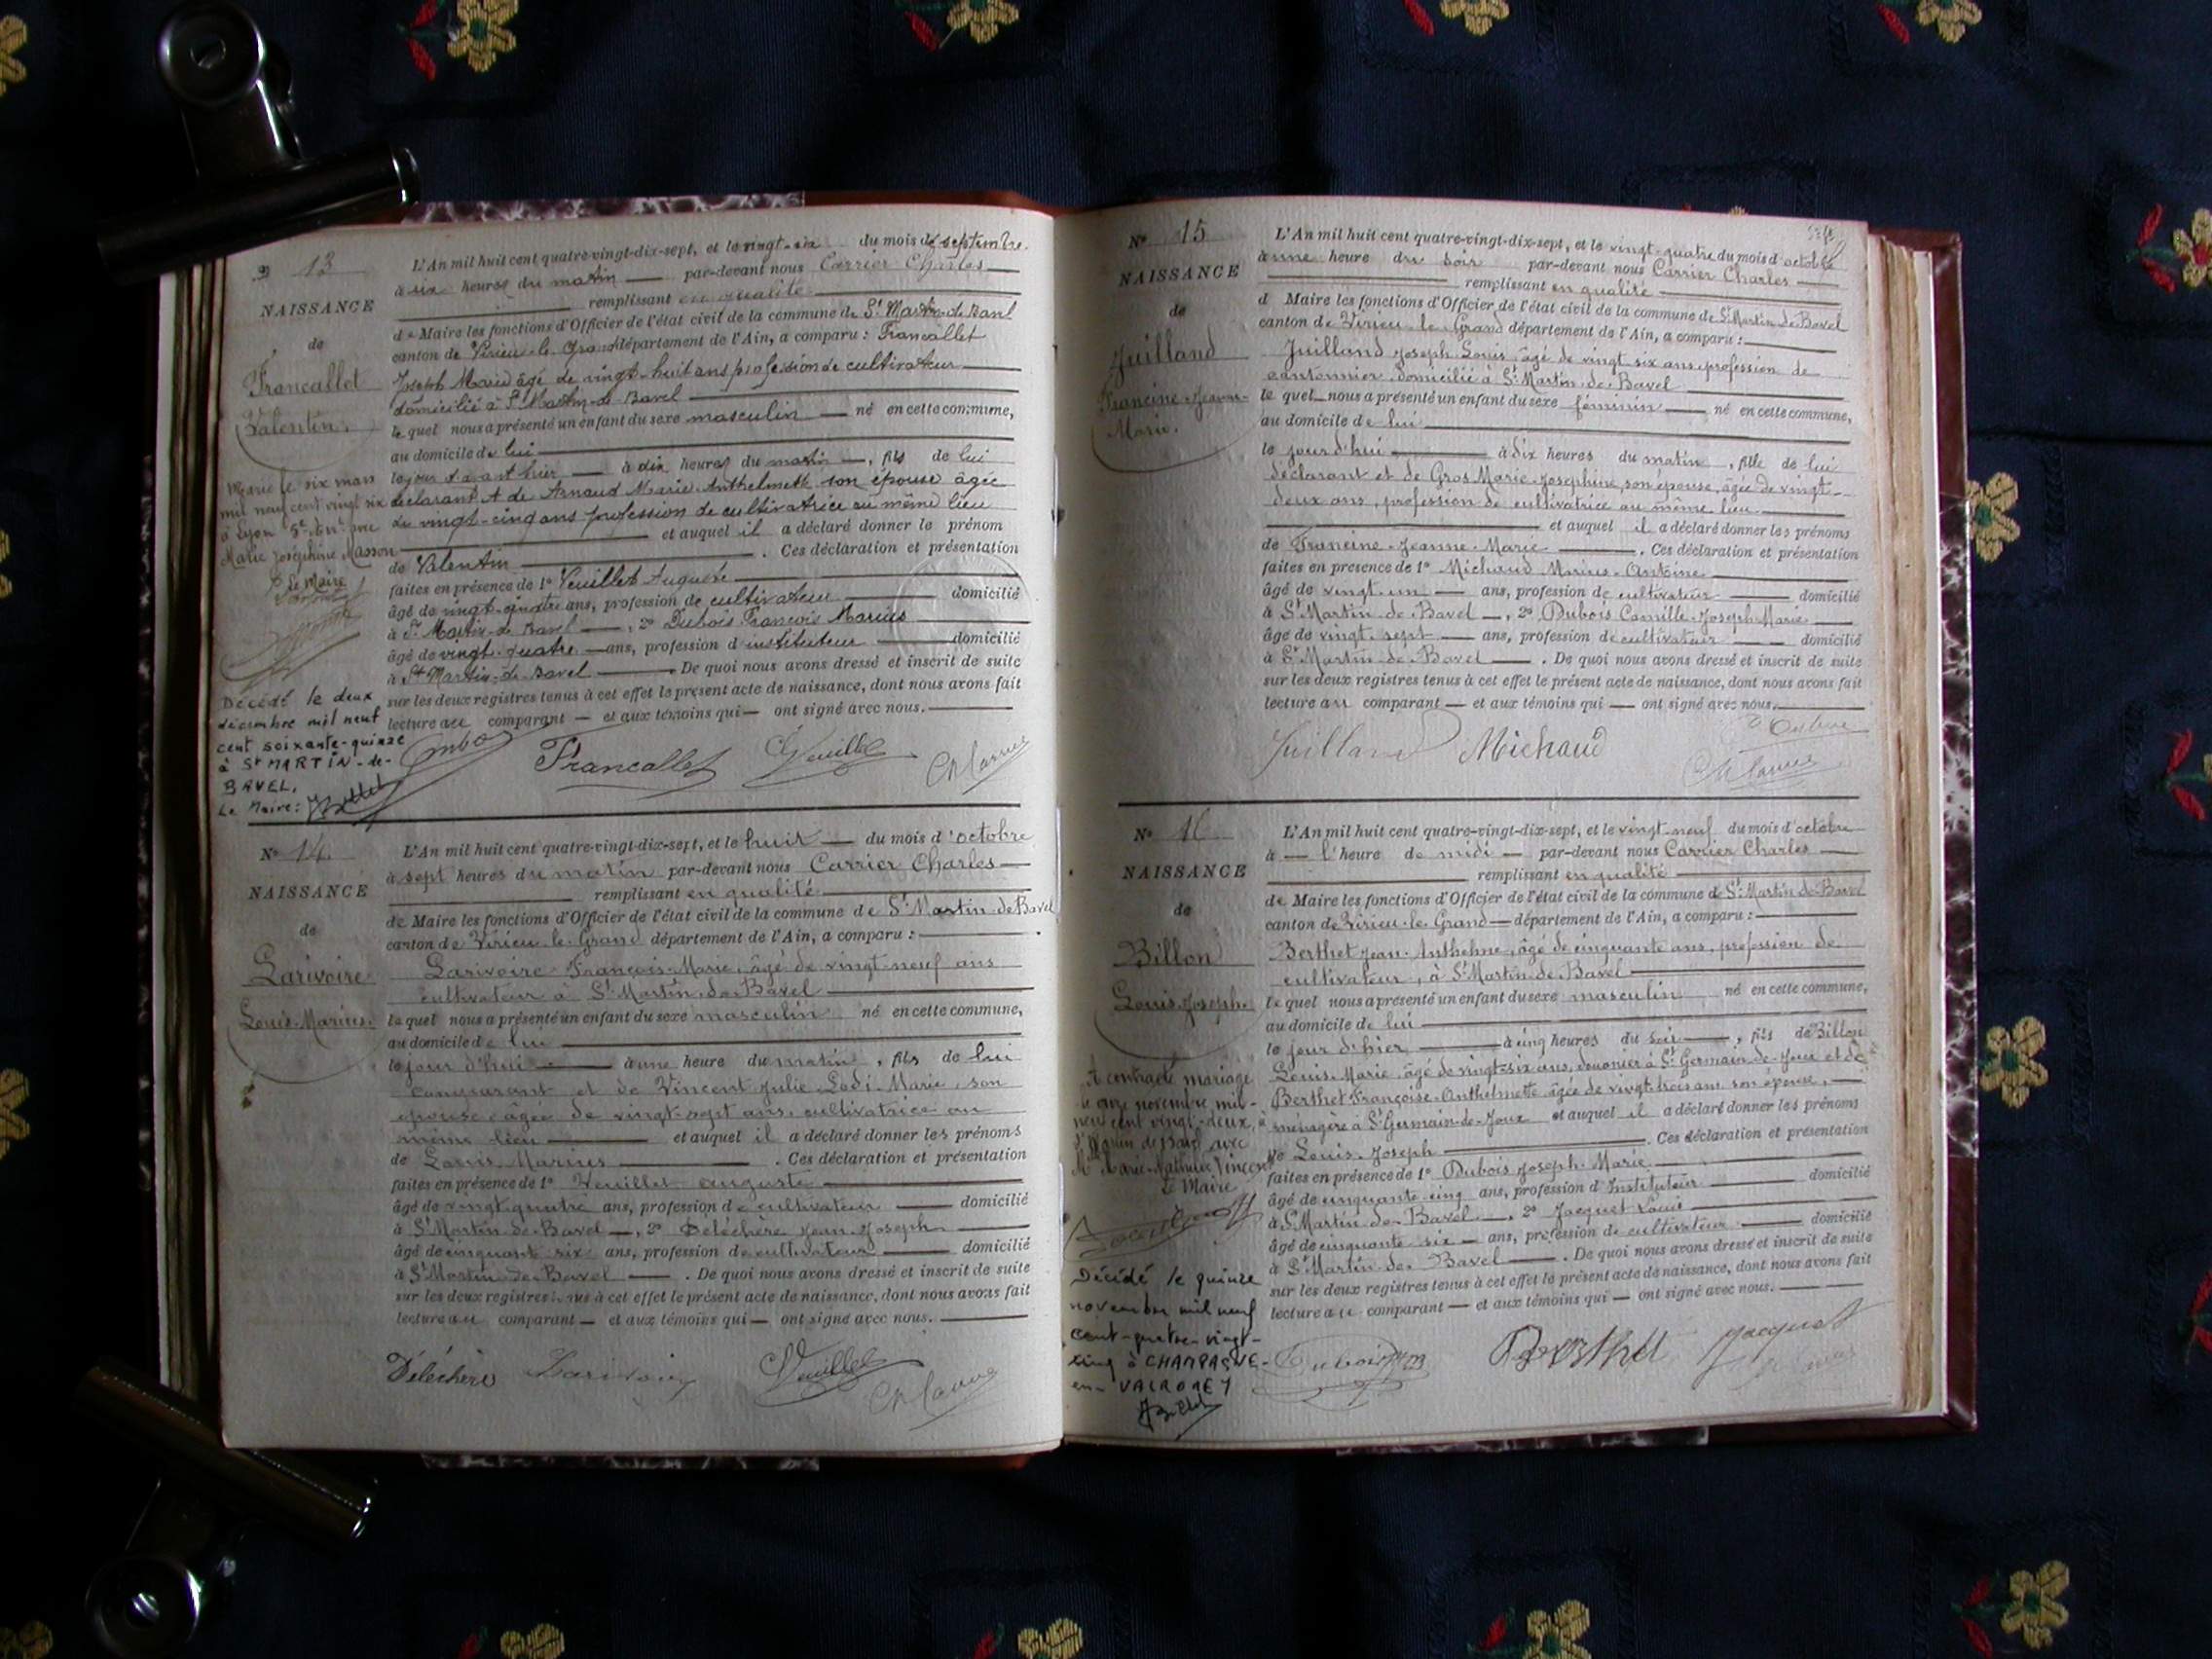 N° 13
NAISSANCE
de
Francallet
Valentin.
Marié le six mars
mil neuf cent vingt six
à Lyon 5e Arrt avec
Marie Joséphine Masson
Le Maire
Décédé le deux
décembre mil neuf
cent soixante-quinze
à St MARTIN-de-
BAVEL.
Le Maire:
L'An mil huit cent quatre-vingt-dix-sept, et le vingt-six du mois de septembre
à six heures du matin par-devant nous Carrier Charles
remplissant en qualité
de Maire les fonctions d'Officier de l'état civil de la commune de St Martin-de-Bavel
canton de Virieu-le-Grand département de l'Ain, a comparu : Francallet
Joseph Marie âgé de vingt-huit ans profession de cultivateur
domicilié à St Martin-de-Bavel
le quel nous a présenté un enfant du sexe masculin né en cette commune,
au domicile de lui
le jour d'avant hier à dix heures du matin, fils de lui
déclarant et de Arnaud Marie Anthelmette son épouse âgée
de vingt-cinq ans profession de cultivatrice au même lieu
et auquel il a déclaré donner le prénom
de Valentin . Ces déclaration et présentation
faites en présence de 1° Veuillet Auguste
âgé de vingt-quatre ans, profession de cultivateur domicilié
à St Martin-de-Bavel , 2° Dubois François Marius
âgé de vingt-quatre ans, profession d'instituteur domicilié
à St Martin-de-Bavel . De quoi nous avons dressé et inscrit de suite
sur les deux registres tenus à cet effet le présent acte de naissance, dont nous avons fait
lecture au comparant et aux témoins qui ont signé avec nous.
Francallet Veuillet
N° 14
NAISSANCE
de
Larivoire
Louis-Marius.
L'An mil huit cent quatre-vingt-dix-sept, et le huit du mois d'octobre
à sept heures du matin par-devant nous Carrier Charles
remplissant en qualité
de Maire les fonctions d'Officier de l'état civil de la commune de St Martin-de-Bavel
canton de Virieu-le-Grand département de l'Ain, a comparu :
Larivoire François-Marie, âgé de vingt-neuf ans
cultivateur à St Martin-de-Bavel
le quel nous a présenté un enfant du sexe masculin né en cette commune,
au domicile de lui
le jour d'hui à une heure du matin, fils de lui
comparant et de Vincent Julie Marie, son
épouse âgée de vingt-sept ans, cultivatrice au
même lieu et auquel il a déclaré donner les prénoms
de Louis Marius . Ces déclaration et présentation
faites en présence de 1° Veuillet auguste
âgé de vingt quatre ans, profession de cultivateur domicilié
à St Martin-de-Bavel , 2° Deléchère Jean-Joseph
âgé de cinquant six ans, profession de cultivateur domicilié
à St Martin-de-Bavel . De quoi nous avons dressé et inscrit de suite
sur les deux registres tenus à cet effet le présent acte de naissance, dont nous avons fait
lecture au comparant et aux témoins qui ont signé avec nous.
Deléchère Larivoire Veuillet
N° 15
NAISSANCE
de
Juilland
Francine-Jeanne-
Marie.
L'An mil huit cent quatre-vingt-dix-sept, et le vingt-quatre du mois d'octobre
à une heure du soir par-devant nous Carrier Charles
remplissant en qualité
d Maire les fonctions d'Officier de l'état civil de la commune de St Martin-de-Bavel
canton de Virieu-le-Grand département de l'Ain, a comparu :
Juilland Joseph-Louis âgé de vingt six ans, profession de
cantonnier domicilié à St Martin-de-Bavel
le quel nous a présenté un enfant du sexe féminin né en cette commune,
au domicile de lui
le jour d'hui à dix heures du matin, fille de lui
déclarant et de Gros Marie-Josephine, son épouse, âgée de vingt-
deux ans, profession de cultivatrice au même lieu
et auquel il a déclaré donner les prénoms
de Francine-Jeanne-Marie . Ces déclaration et présentation
faites en présence de 1° Michaud Marius-Antoine
âgé de vingt-un ans, profession de cultivateur domicilié
à St Martin-de-Bavel , 2° Dubois Camille-Joseph-Marie
âgé de vingt sept ans, profession de cultivateur domicilié
à St Martin-de-Bavel . De quoi nous avons dressé et inscrit de suite
sur les deux registres tenus à cet effet le présent acte de naissance, dont nous avons fait
lecture au comparant et aux témoins qui ont signé avec nous.
Juilland Michaud
N° 16
NAISSANCE
de
Billon
Louis-Joseph.
A contracté mariage
le onze novembre mil-
neuf cent vingt-deux, à
St Martin de Bavel avec
Mlle Marie-Mathilde Vincent
Le Maire
Décédé le quinze
novembre mil neuf
cent-quatre-vingt-
cinq à CHAMPAGNE-
en-VALROMEY
L'An mil huit cent quatre-vingt-dix-sept, et le vingt-neuf du mois d'octobre
à l'heure de midi par-devant nous Carrier Charles
remplissant en qualité
de Maire les fonctions d'Officier de l'état civil de la commune d St Martin-de-Bavel
canton de Virieu-le-Grand département de l'Ain, a comparu :
Berthet Jean-Anthelme, âgé de cinquante ans, profession de
cultivateur, à St Martin-de-Bavel
le quel nous a présenté un enfant du sexe masculin né en cette commune,
au domicile de lui
le jour d'hier à cinq heures du soir, fils de Billon
Louis-Marie, âgé de vingt-six ans, douanier à St Germain-de-Joux et de
Berthet Françoise-Anthelmette âgée de vingt trois ans son épouse,
ménagère à St Germain-de-Joux et auquel il a déclaré donner les prénoms
de Louis-Joseph . Ces déclaration et présentation
faites en présence de 1° Dubois Joseph-Marie
âgé de cinquante cinq ans, profession d'Instituteur domicilié
à St Martin-de-Bavel , 2° Jacquet Louis
âgé de cinquante six ans, profession de cultivateur domicilié
à St Martin-de-Bavel . De quoi nous avons dressé et inscrit de suite
sur les deux registres tenus à cet effet le présent acte de naissance, dont nous avons fait
lecture au comparant et aux témoins qui ont signé avec nous.
Dubois Berthet Jacquet